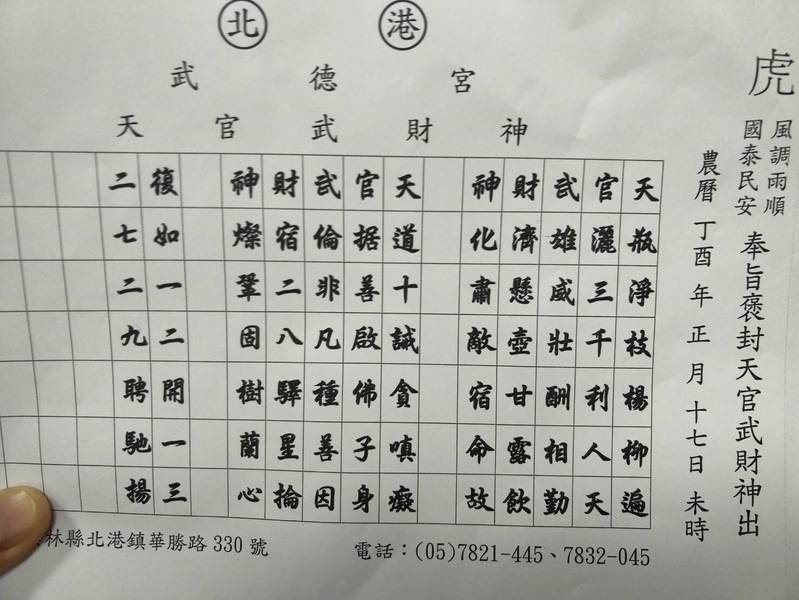 北港
武德宮
天官武財神
虎
風調雨順
國泰民安
奉旨褒封天官武財神出
農曆 丁酉 年 正 月 十七日 未時
天瓶淨枝楊柳遍
官灑三千利人天
武雄威壯酬相勤
財濟懸壺甘露飲
神化肅敵宿命故
天道十誡貪嗔癡
官据善啟佛子身
武倫非凡種善因
財宿二八驛星掄
神燦鞏固樹蘭心
復如一二開一三
二七二九聘馳揚
林縣北港鎮華勝路 330 號
電話：(05)7821-445、7832-045